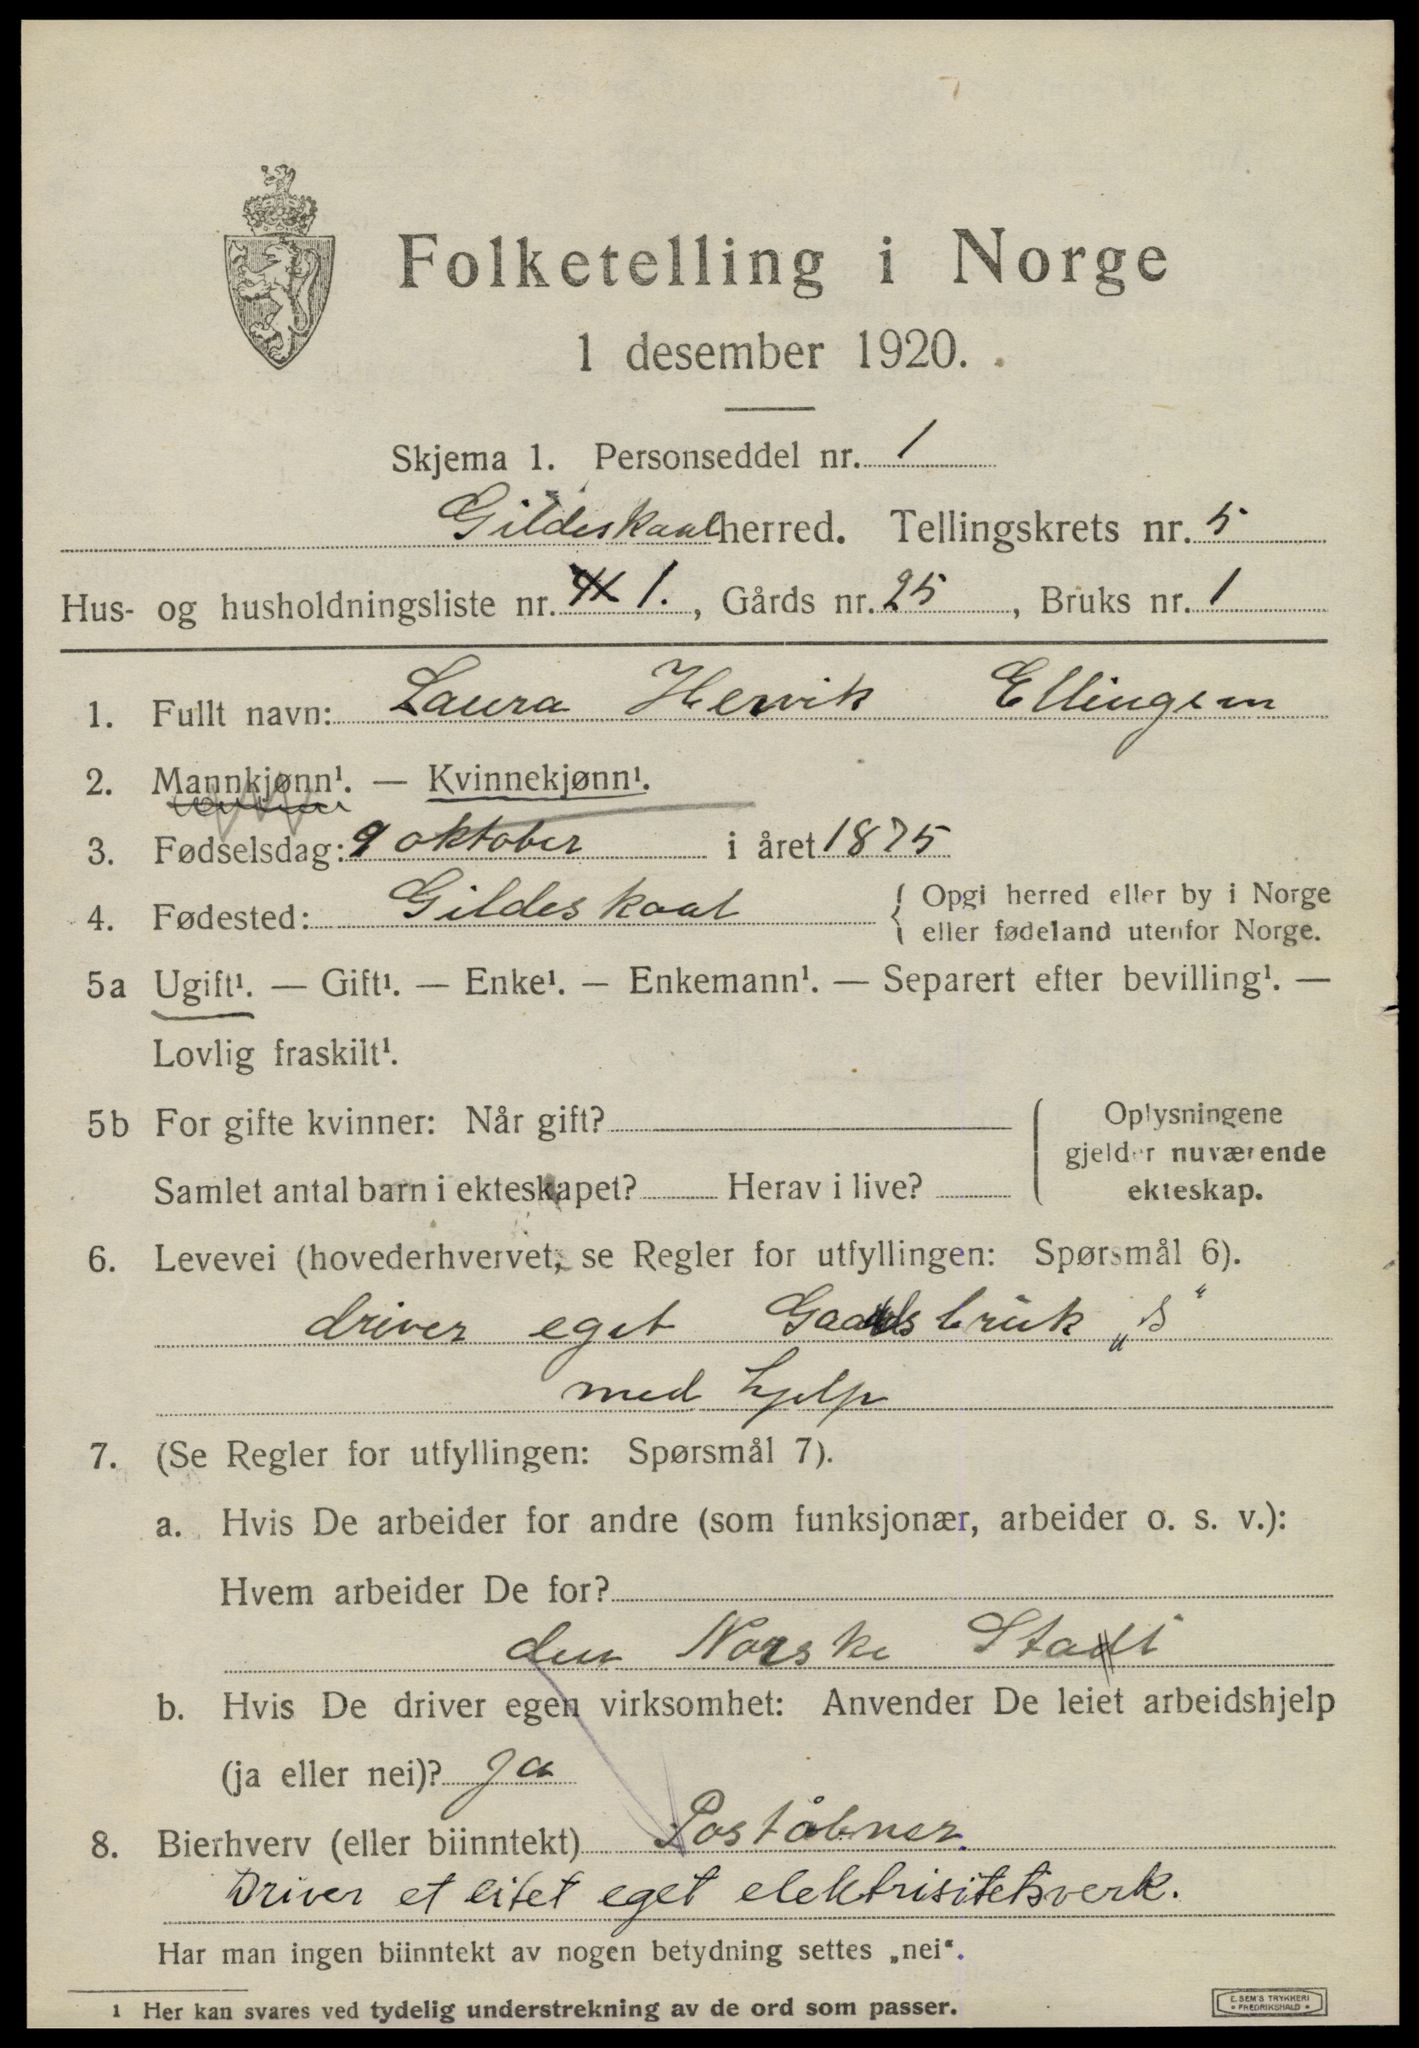 Folketelling i Norge
1 desember 1920.
Skjema 1. Personseddel nr. 1
Gildeskaal herred. Tellingskrets nr. 5
Hus- og husholdningsliste nr. 1., Gårds nr. 25, Bruks nr. 1
1. Fullt navn: Laura Hervik Ellingsen
2. Mannkjønn¹. — Kvinnekjønn¹.
3. Fødselsdag: 9 oktober i året 1875
4. Fødested: Gildeskaal { Opgi herred eller by i Norge
eller fødeland utenfor Norge.
5a Ugift¹. — Gift¹. — Enke¹. — Enkemann¹. — Separert efter bevilling¹. —
Lovlig fraskilt¹.
5b For gifte kvinner: Når gift?
Samlet antal barn i ekteskapet? Herav i live?
Oplysningene
gjelder nuværende
ekteskap.
6. Levevei (hovederhvervet, se Regler for utfyllingen: Spørsmål 6).
driver eget Gaardsbruk „S“
med hjelp
7. (Se Regler for utfyllingen: Spørsmål 7).
a. Hvis De arbeider for andre (som funksjonær, arbeider o. s. v.):
Hvem arbeider De for?
den Norske Stadt
b. Hvis De driver egen virksomhet: Anvender De leiet arbeidshjelp
(ja eller nei)? ja
8. Bierhverv (eller biinntekt) Poståbner.
Driver et litet eget elektrisitetsverk.
Har man ingen biinntekt av nogen betydning settes „nei“.
1 Her kan svares ved tydelig understrekning av de ord som passer.
E. SEM'S TRYKKERI
FREDRIKSHALD